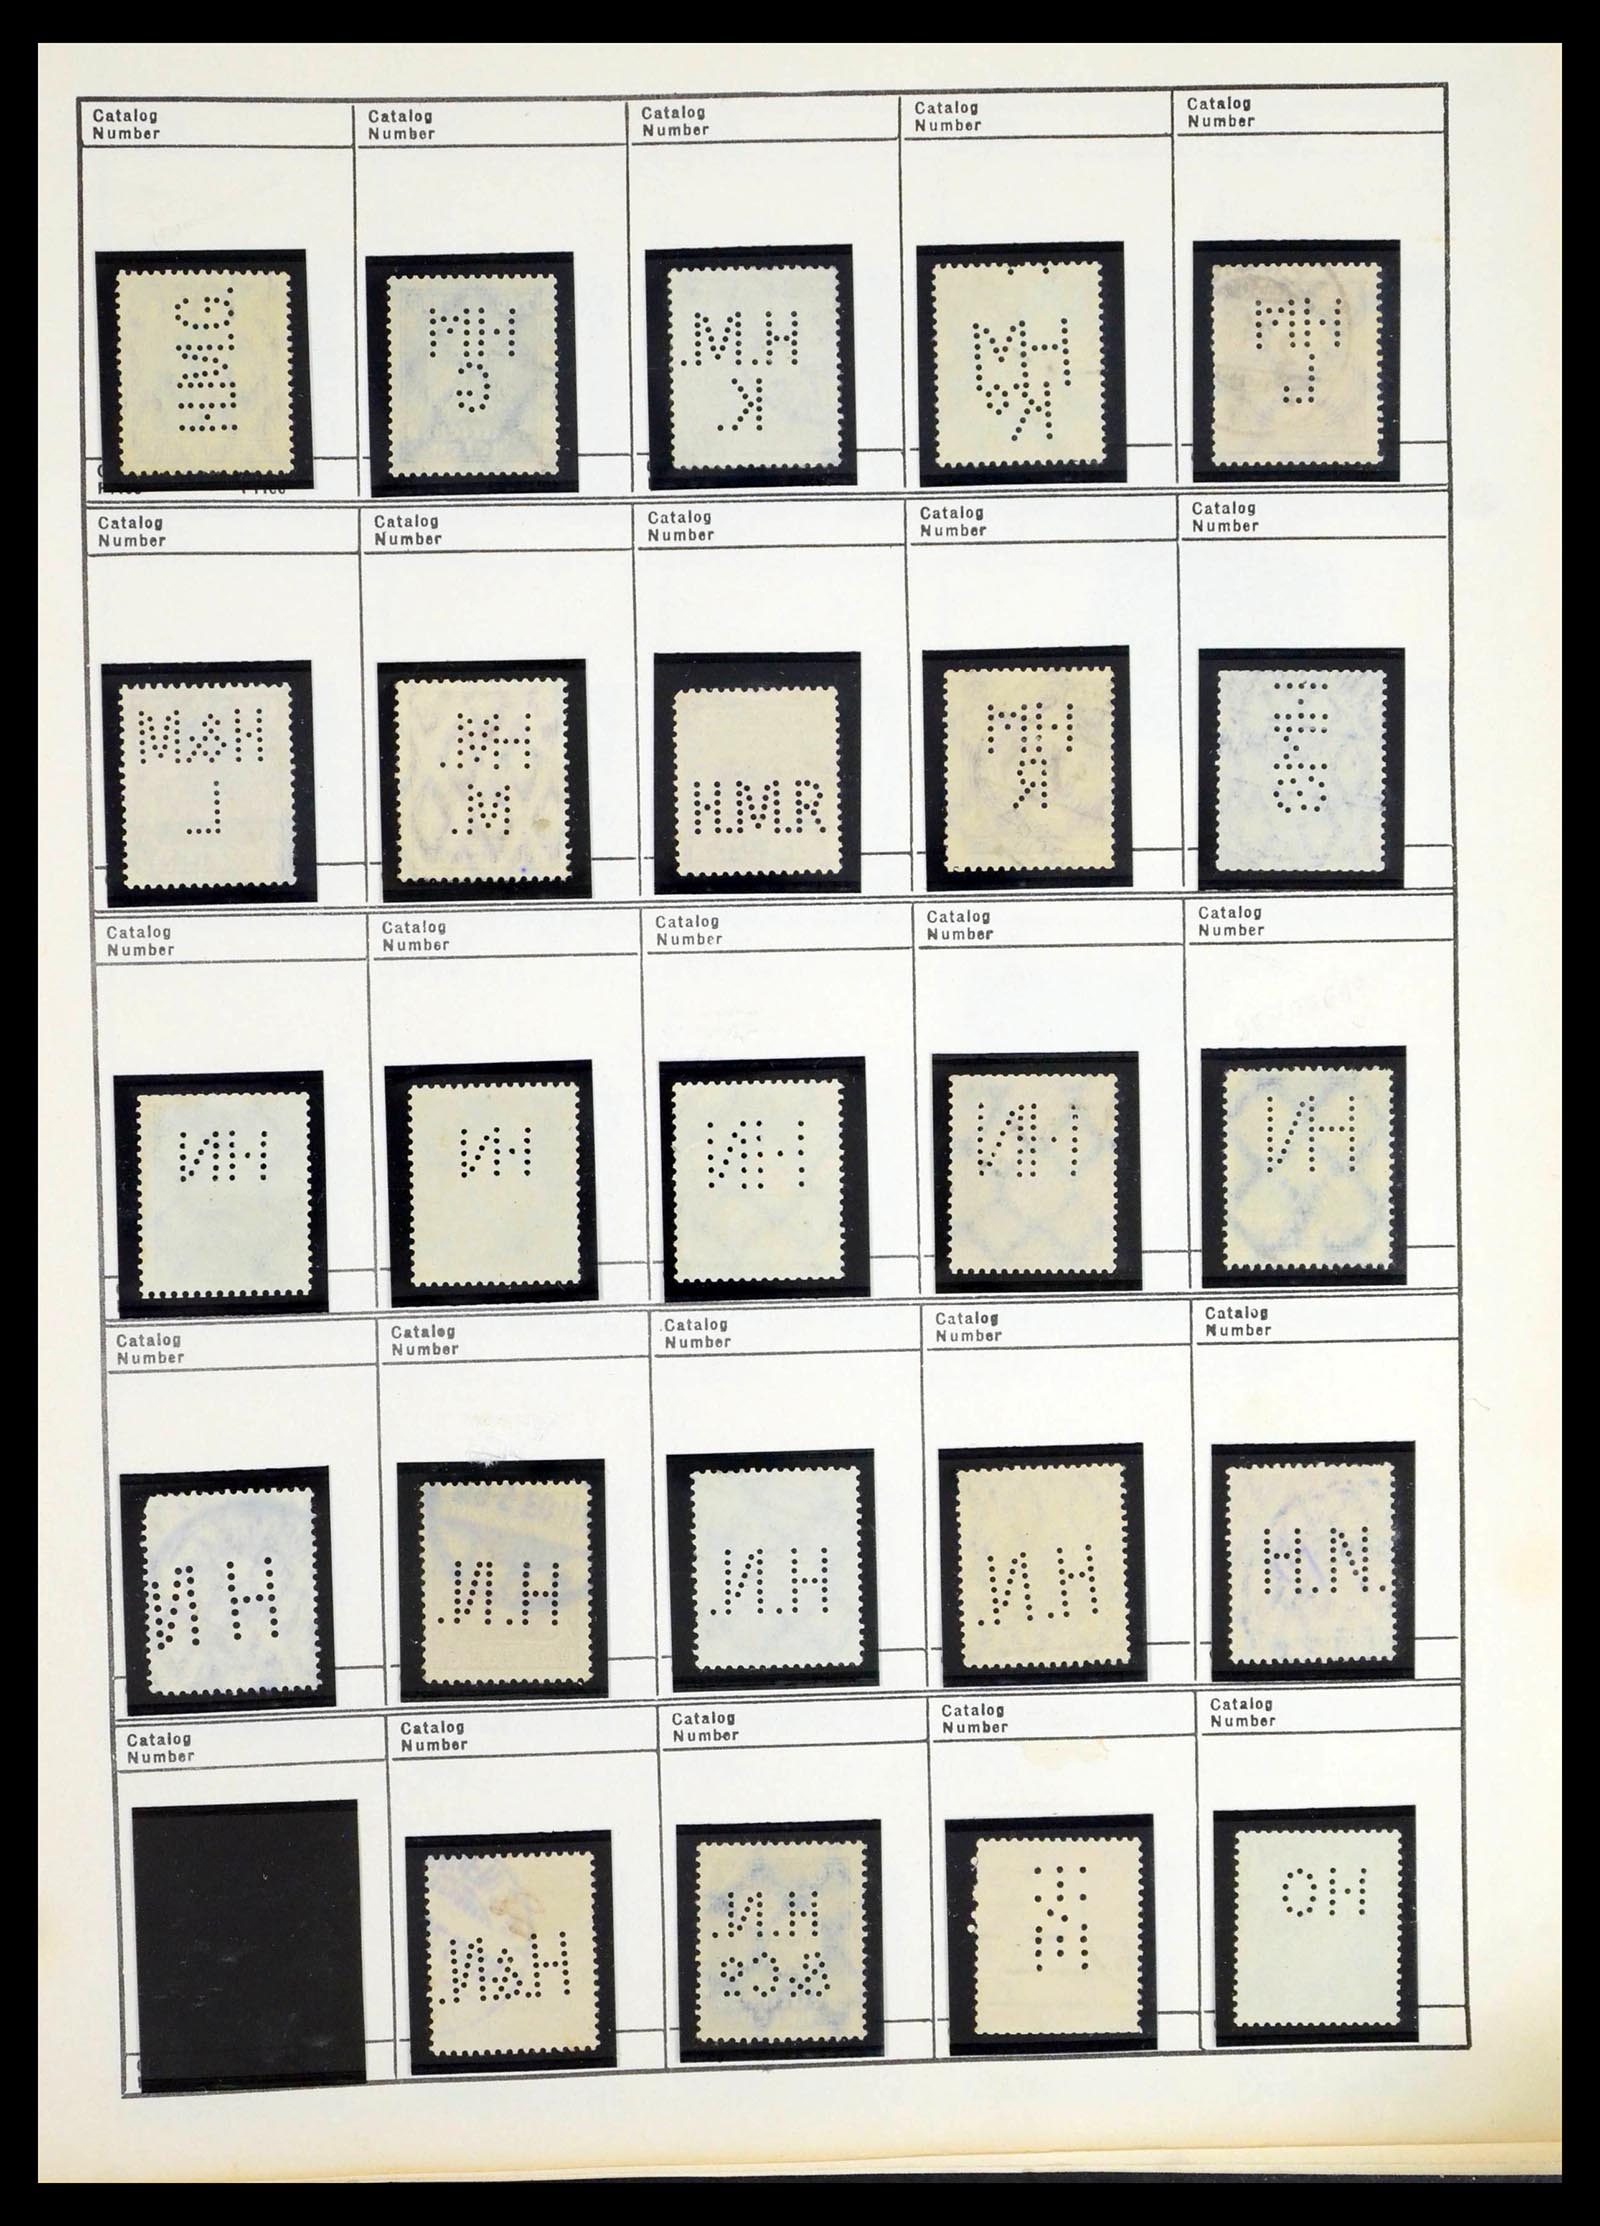 Catalog Number Catalog Number Catalog Number Catalog Number Catalog Number
HMG
HM
G
H.M.
K.
HM
HM
L
Catalog Number Catalog Number Catalog Number Catalog Number Catalog Number
H&M
L
HM.
M.
H.M.R
HM
R
Catalog Number Catalog Number Catalog Number Catalog Number Catalog Number
HN
HN
HN
HN
HN
Catalog Number Catalog Number Catalog Number Catalog Number Catalog Number
HN
H.N.
H.N.
H.N.
H.N.
Catalog Number Catalog Number Catalog Number Catalog Number Catalog Number
H.&N.
H.N.
&Co
HO